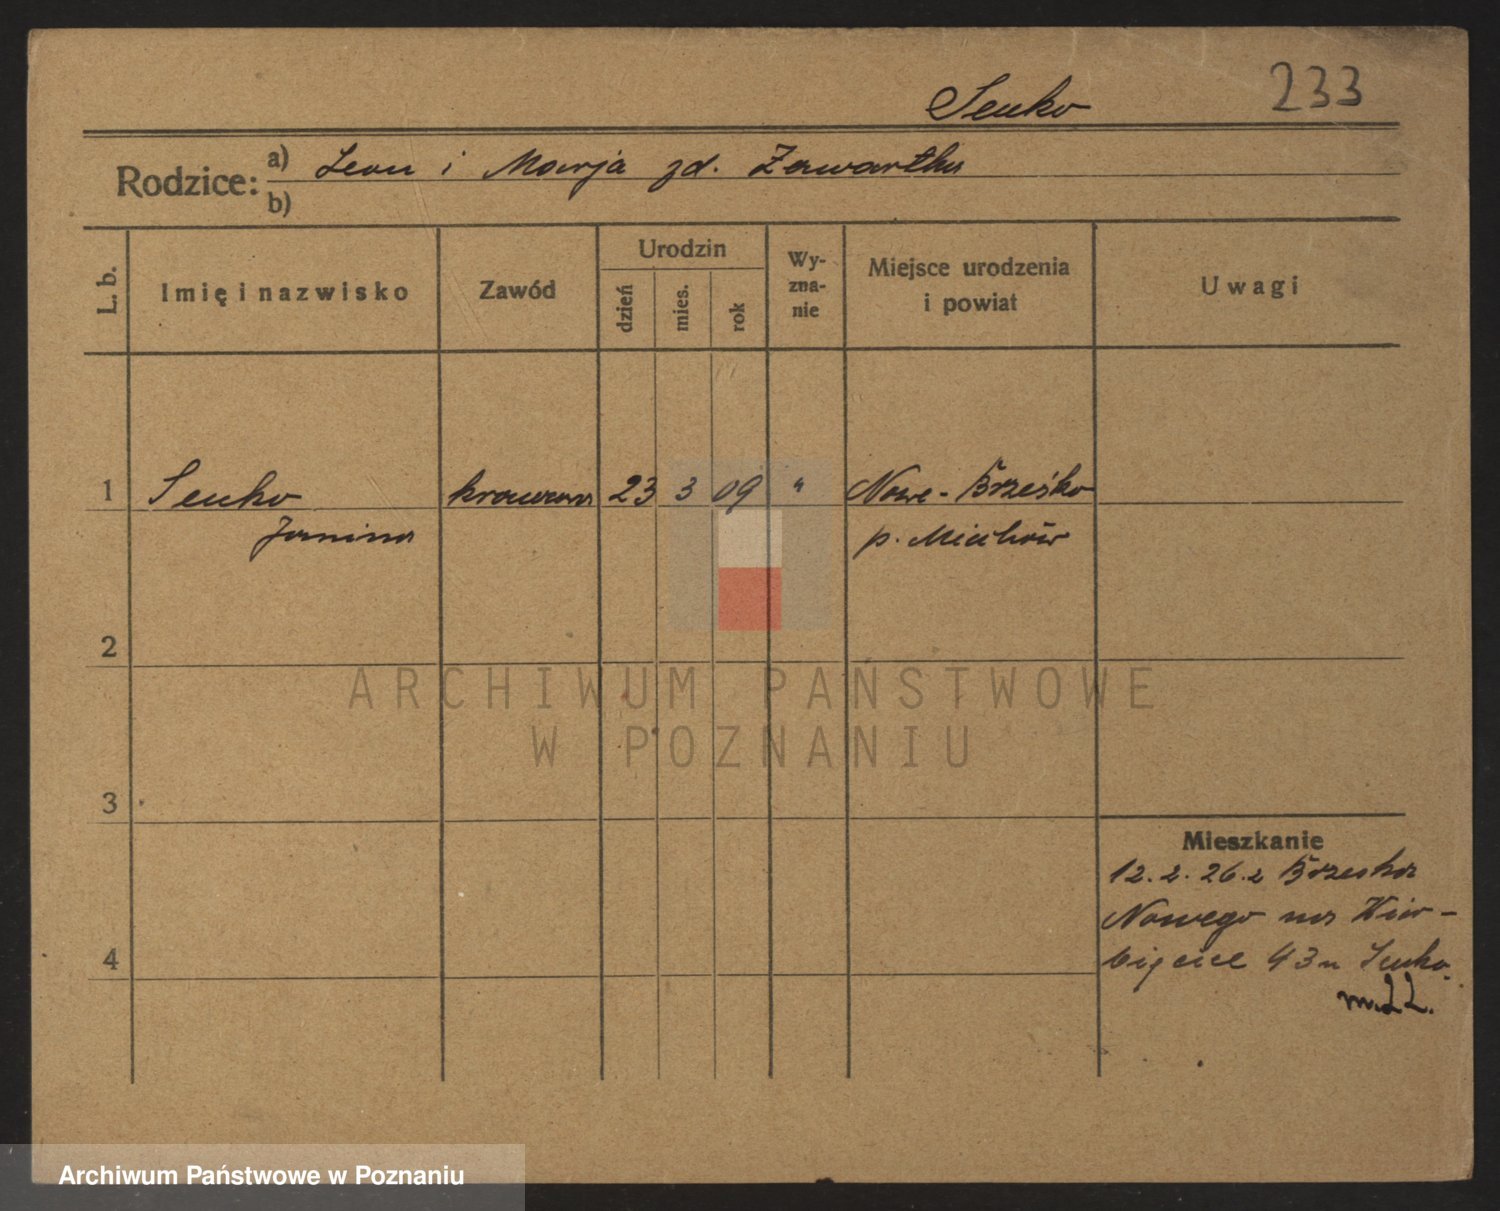 233
Senko
Rodzice: a) Leon i Marja zd. Zawartka
b)
L. b.
Imię i nazwisko
Zawód
Urodzin
dzień
mies.
rok
Wy-
zna-
nie
Miejsce urodzenia
i powiat
Uwagi
1 Senko krawcowa 23 3 09 " Nowe-Brzesko
Janina p. Miechów
2
ARCHIWUM PAŃSTWOWE
W POZNANIU
3
Mieszkanie
12.2.26 z Brzeska
Nowego na
4
43 u Senko
Archiwum Państwowe w Poznaniu